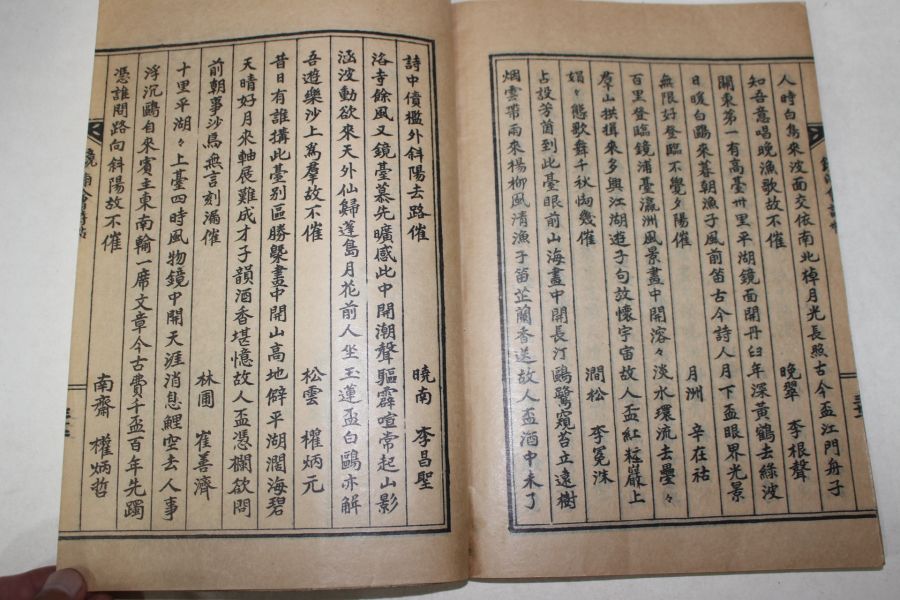 人時白雋來波面交依南北棹月光長照古今盃江門舟子
知吾意唱晚漁歌故不催 晚翠 李根聲
關東第一有高臺卅里平湖鏡面開丹臼年深黃鶴去綠波
日暖白鷗來暮朝漁子風前笛古今詩人月下盃眼界光景
無限好登臨不覺夕陽催 月洲 辛在祜
百里登臨鏡浦臺瀛洲風景畵中開溶々淡水環流去疊々
羣山拱揖來多興江湖遊子句故懷宇宙故人盃紅粧巖上
娟々態歌舞千秋幾催 澗松 李冕洙
占設芳茵到此臺眼前山海畵中開長汀鷗鷺窺苔立遠樹
烟雲帶雨來楊柳風清漁子笛芷蘭香送故人盃酒中未了
詩中債檻外斜陽去路催 曉南 李昌聖
洛寺餘風又鏡臺慕先曠感此中開潮聲驅霹喧常起山影
涵波動欲來天外仙歸蓬島月花前人坐玉蓮盃白鷗亦解
吾遊樂沙上爲羣故不催 松雲 權炳元
昔日有誰搆此臺別區勝槩畵中開山高地僻平湖濶海碧
天晴好月來軸展難成才子韻酒香堪憶故人盃憑欄欲問
前朝事沙馬無言刻漏催 林圃 崔善濟
十里平湖々上臺四時風物鏡中開天涯消息鯉空去人事
浮沉鷗自來賓主東南輪一席文章今古費千盃百年先躅
憑誰問路向斜陽故不催 南齋 權炳哲